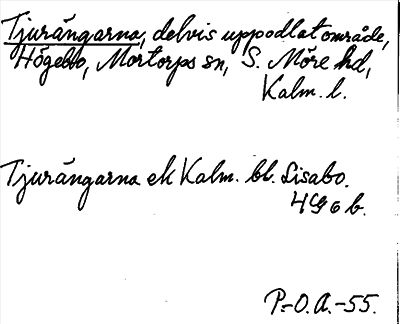 Tjurängarna, delvis uppodlat område,
Högebo, Mortorps sn, S. Möre hd,
Kalm. l.
Tjurängarna ek Kalm. bl. Lisabo.
4 G 6 b.
P.-O. A. -55.